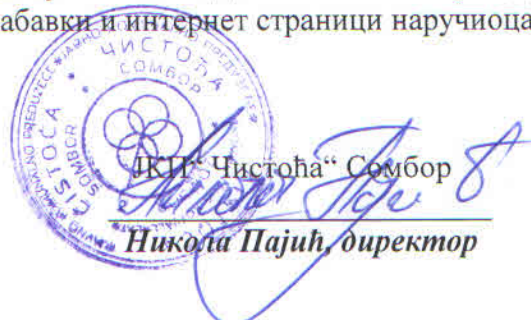 абавки и интернет страници наручиоца
ЧИСТОЋА
СОМБОР
ČISTOĆA
SOMBOR
ЈКП“ Чистоћа“ Сомбор
Никола Пајић, директор